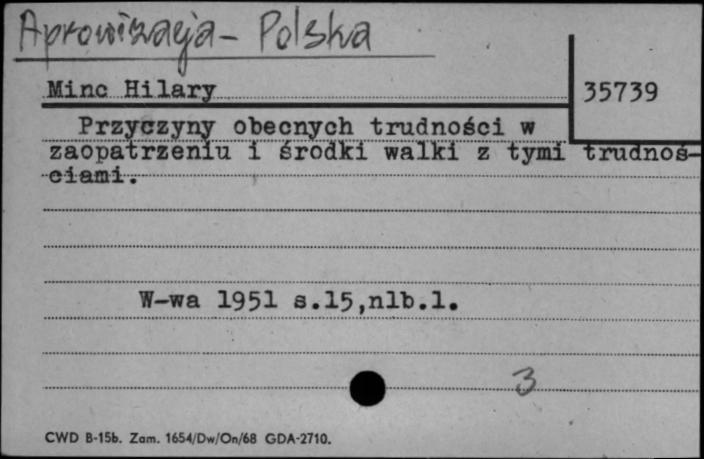 Aprowizacja - Polska
Minc Hilary
35739
Przyczyny obecnych trudności w
zaopatrzeniu i środki walki z tymi trudnoś-
ciami.
W-wa 1951 s.15,nlb.1.
3
CWD B-15b. Zam. 1654/Dw/On/68 GDA-2710.